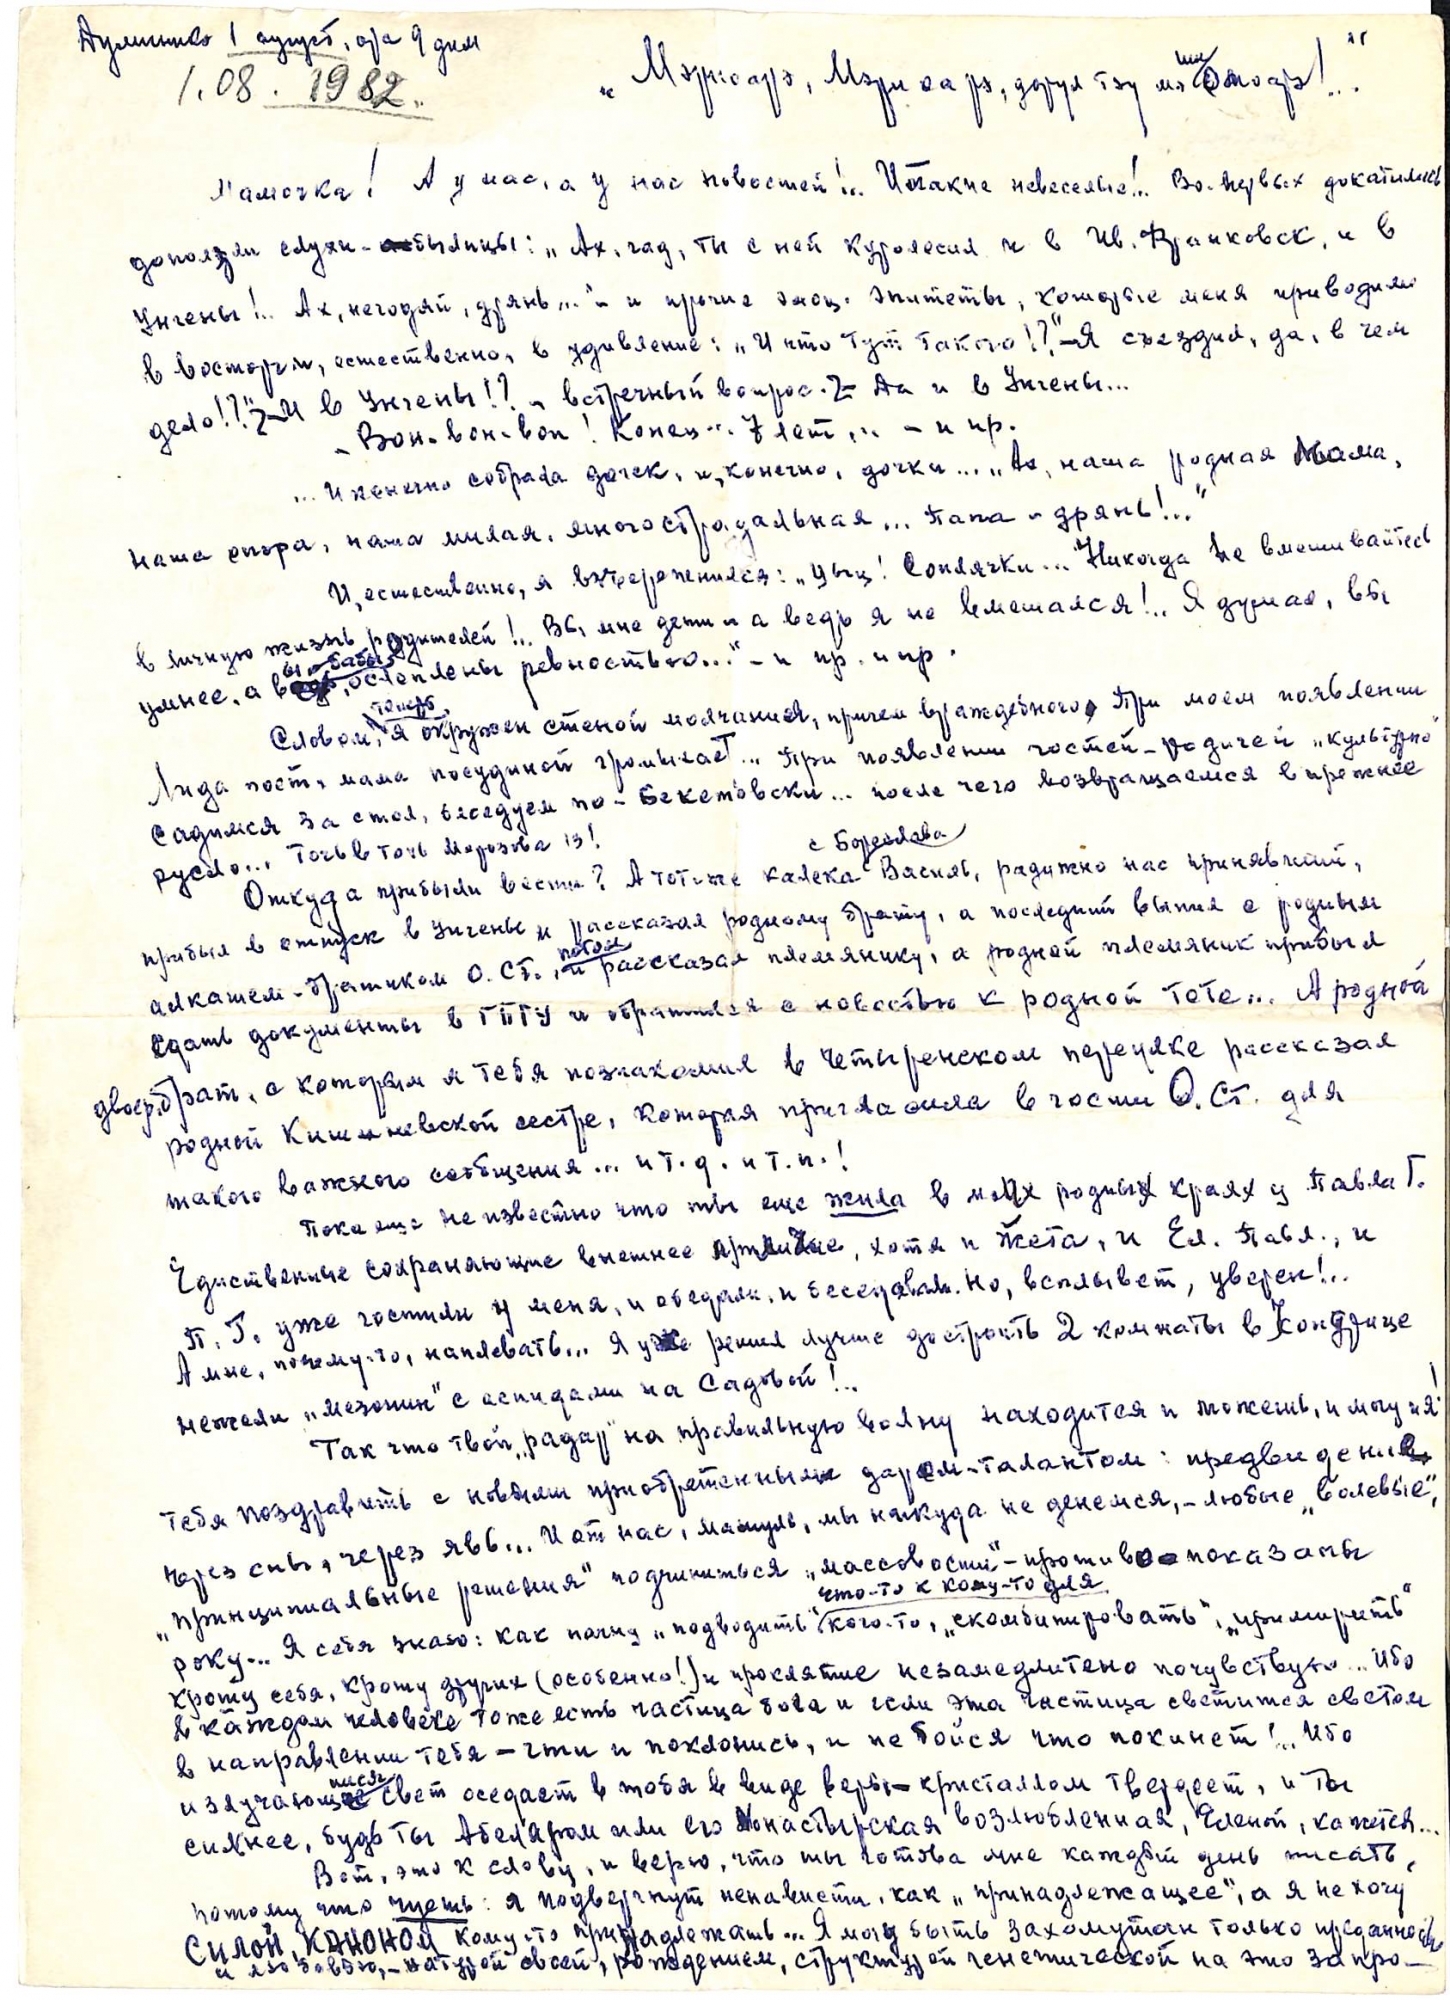 Думинико 1 август, ора 9 дим
1.08.1982.
„Мэриоарэ, Мэриоарэ, дорул тэу мэ омоарэ!..."
Мамочка! А у нас, а у нас новостей!.. И такие невеселые!.. Во-первых докатились
доползли слухи-былицы: „Ах, гад, ты с ней куролесил и в Ив. Франковск, и в
Унгены!.. Ах, негодяй, дрянь..."- и прочие эпитеты, которые меня приводили
в восторги, естественно, в удивление: „И что тут такого!?"- Я съездил, да, в чем
дело!?" - И в Унгены!? - встречный вопрос. - Да и в Унгены...
- Вон-вон-вон! Конец... 7 лет... - и пр.
... И конечно собрала дочек, и, конечно, дочки... „Ах, наша родная Мама,
наша опора, наша милая, многострадальная... Папа - дрянь!..."
И, естественно, я взъерошенился: „Цыц! Соплячки... Никогда не вмешивайтесь
в личную жизнь родителей!.. Вы мне дети и а ведь я не вмешался!.. Я думал, вы
умнее, а вы, бабы, ослеплены ревностью..."- и пр. и пр.
Словом, теперь я окружен стеной молчания, причем враждебного. При моем появлении
Лида поет, мама посудиной громыхает... При появлении гостей-родичей „культурно"
садимся за стол, беседуем по-Бекетовски... после чего возвращаемся в прежнее
русло... Точь в точь Морозова 13!
Откуда прибыли вести? А тот же калека с Борислава Василь, радужно нас принявший,
прибыл в отпуск в Унгены и рассказал родному брату, а последний выпил с родным
алкашем-братиком О. Ст., и потом рассказал племянику, а родной племяник прибыл
сдать документы в ГПТУ и обратился с новостью к родной тете... А родной
двоюр. брат, с которым я тебя познакомил в Четыренском переулке рассказал
родной Кишиневской сестре, которая пригласила в гости О. Ст. для
такого важного сообщения... и т.д. и т.п.!
Пока еще неизвестно что ты еще жила в моих родных краях у Павла Г.
Единственные сохраняющие внешнее приличие, хотя и Жета, и Ел. Павл., и
П. Г. уже гостили у меня, и обедали, и беседовали. Но, всплывет, уверен!..
А мне, почему-то, наплевать... Я уже решил лучше достроить 2 комнаты в Кондрице
нежели „мезонин" с аспидами на Садовой!..
Так что твой „радар" на правильную волну находится и можешь, и могу и я!
тебя поздравить с новым приобретенным даром-талантом: предвидения
через сны, через явь... И от нас, мамуль, мы никуда не денемся, - любые „волевые",
„принципиальные решения" подчиниться „массовости" - противопоказаны
року... Я себя знаю: как начну „подводить" что-то к кому-то для кого-то, „скомбинировать", „примирить"
крошу себя, крошу других (особенно!) и проклятие незамедлитено почувствую... Ибо
в каждом человеке тоже есть частица бога и если эта частица светится светом
в направлении тебя - чти и поклонись, и не бойся что покинет!.. Ибо
излучающийся свет оседает в тебя в виде веры - кристаллом твердеет, и ты
сильнее, будь ты Абеляром или его монастырская возлюбленная, Еленой, кажется...
Вот, это к слову, и верю, что ты готова мне каждый день писать,
потому что чуешь: я подвергнут ненависти, как „принадлежащее", а я не хочу
СИЛОЙ, КАНОНОМ кому-то принадлежать... Я могу быть захомутан только преданностью
и любовью, - натурой своей, рождением, структурой генетической на это запро-